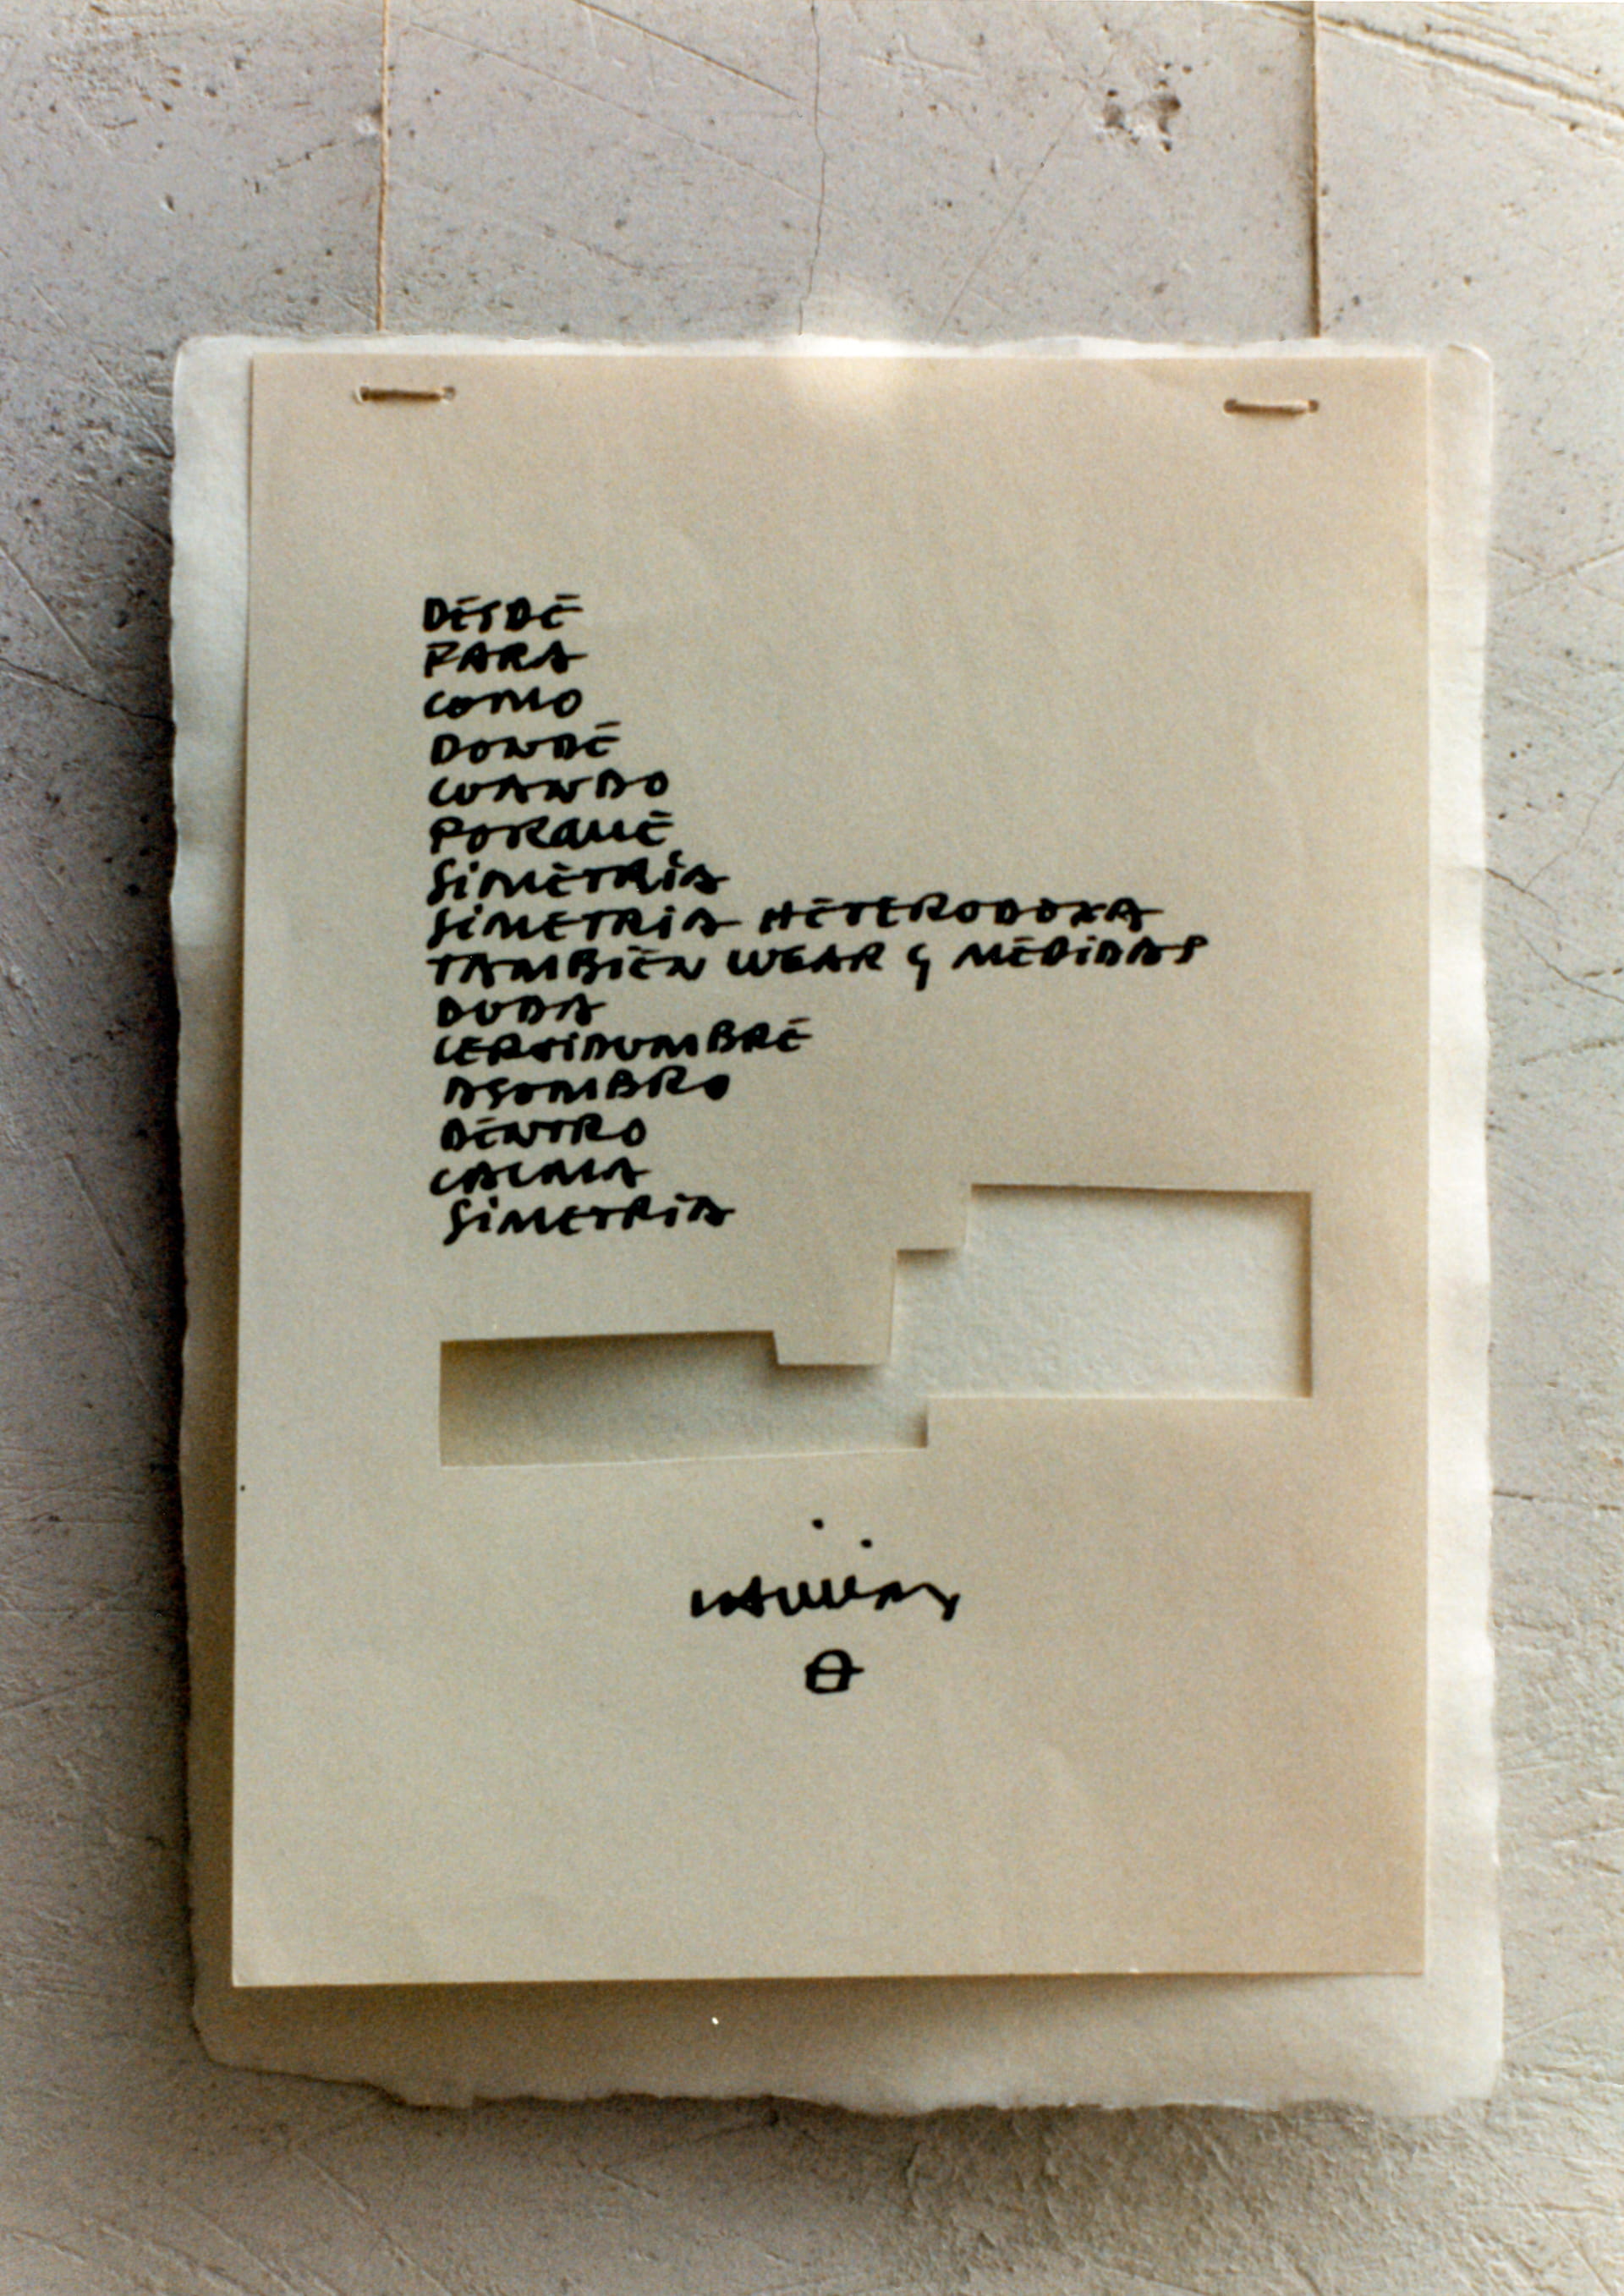 DESDE
PARA
COMO
DONDE
CUANDO
PORQUE
SIMETRÍA
SIMETRIA HETERODOXA
TAMBIÉN Y MEDIDAS
DUDA
CERTIDUMBRE
ASOMBRO
DENTRO
CALMA
SIMETRIA